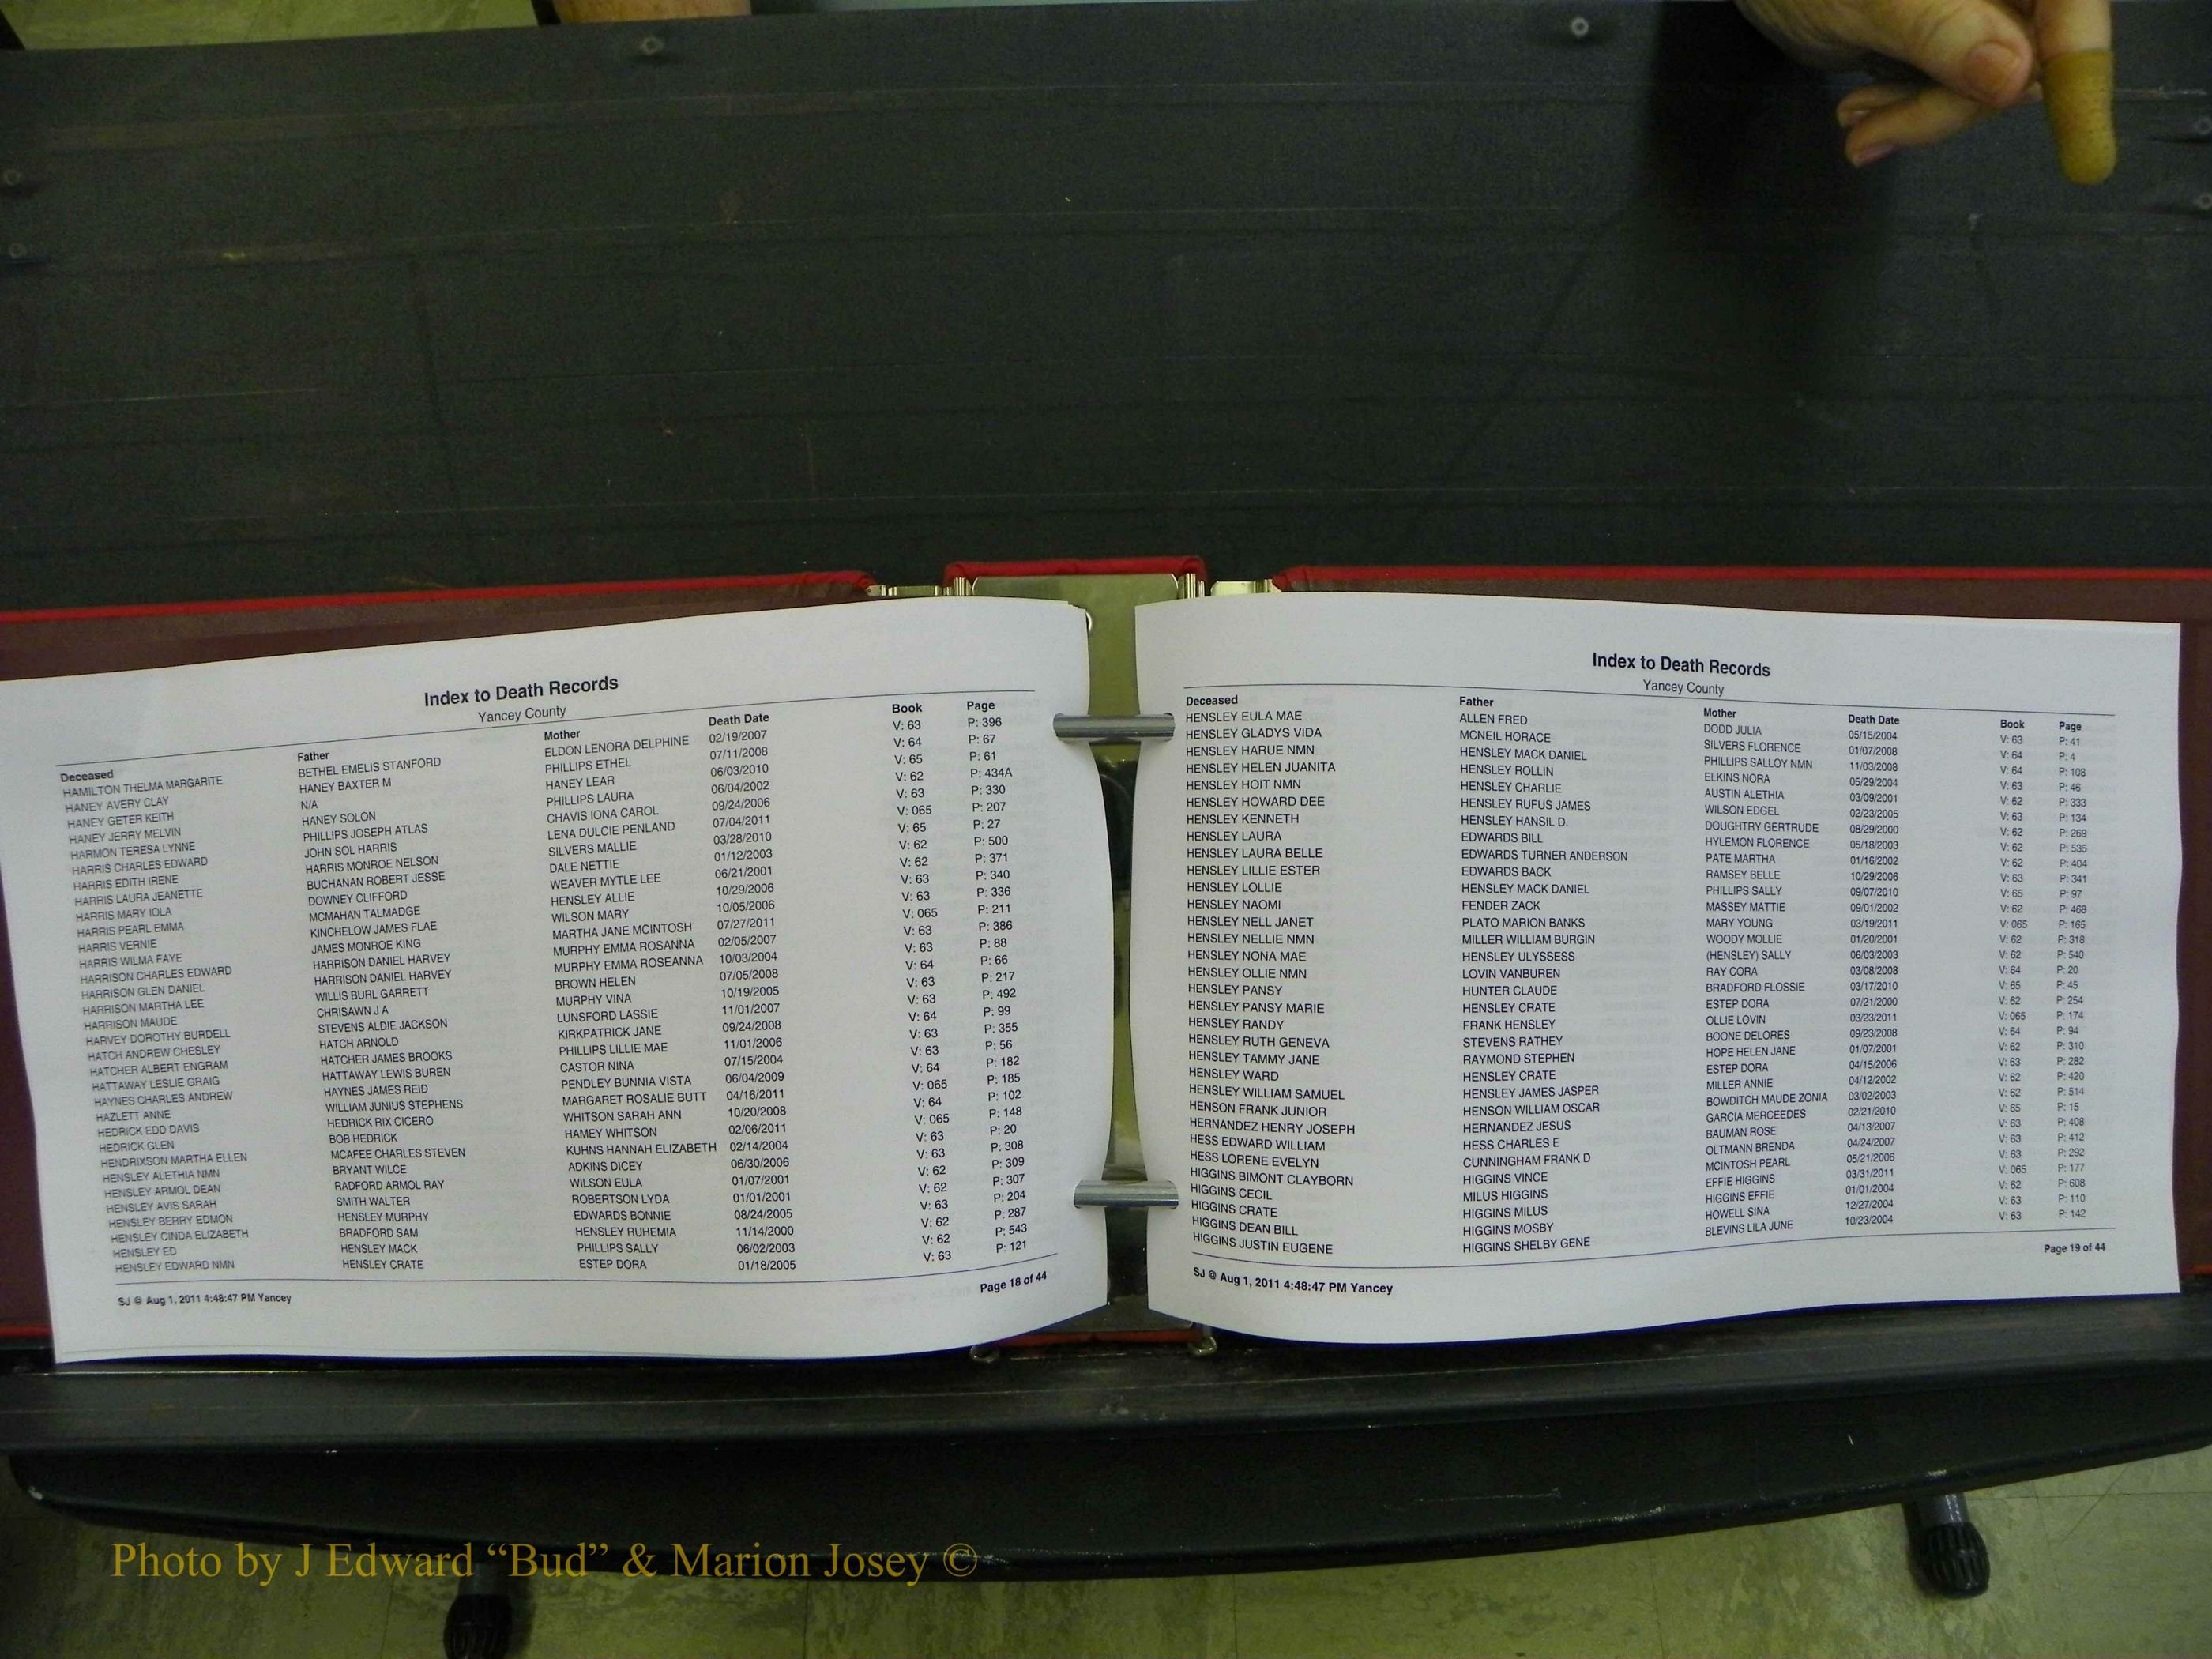 Index to Death Records
Yancey County
Deceased Father Mother Death Date Book Page
HAMILTON THELMA MARGARITE BETHEL EMELIS STANFORD ELDON LENORA DELPHINE 02/19/2007 V: 63 P: 396
HANEY AVERY CLAY HANEY BAXTER M PHILLIPS ETHEL 07/11/2008 V: 64 P: 67
HANEY GETER KEITH N/A HANEY LEAR 06/03/2010 V: 65 P: 61
HANEY JERRY MELVIN HANEY SOLON PHILLIPS LAURA 06/04/2002 V: 62 P: 434A
HARMON TERESA LYNNE PHILLIPS JOSEPH ATLAS CHAVIS IONA CAROL 09/24/2006 V: 63 P: 330
HARRIS CHARLES EDWARD JOHN SOL HARRIS LENA DULCIE PENLAND 07/04/2011 V: 065 P: 207
HARRIS EDITH IRENE HARRIS MONROE NELSON SILVERS MALLIE 03/28/2010 V: 65 P: 27
HARRIS LAURA JEANETTE BUCHANAN ROBERT JESSE DALE NETTIE 01/12/2003 V: 62 P: 500
HARRIS MARY IOLA DOWNEY CLIFFORD WEAVER MYTLE LEE 06/21/2001 V: 62 P: 371
HARRIS PEARL EMMA MCMAHAN TALMADGE HENSLEY ALLIE 10/29/2006 V: 63 P: 340
HARRIS VERNIE KINCHELOW JAMES FLAE WILSON MARY 10/05/2006 V: 63 P: 336
HARRIS WILMA FAYE JAMES MONROE KING MARTHA JANE MCINTOSH 07/27/2011 V: 065 P: 211
HARRISON CHARLES EDWARD HARRISON DANIEL HARVEY MURPHY EMMA ROSANNA 02/05/2007 V: 63 P: 386
HARRISON GLEN DANIEL HARRISON DANIEL HARVEY MURPHY EMMA ROSEANNA 10/03/2004 V: 63 P: 88
HARRISON MARTHA LEE WILLIS BURL GARRETT BROWN HELEN 07/05/2008 V: 64 P: 66
HARRISON MAUDE CHRISAWN J A MURPHY VINA 10/19/2005 V: 63 P: 217
HARVEY DOROTHY BURDELL STEVENS ALDIE JACKSON LUNSFORD LASSIE 11/01/2007 V: 63 P: 492
HATCH ANDREW CHESLEY HATCH ARNOLD KIRKPATRICK JANE 09/24/2008 V: 64 P: 99
HATCHER ALBERT ENGRAM HATCHER JAMES BROOKS PHILLIPS LILLIE MAE 11/01/2006 V: 63 P: 355
HATTAWAY LESLIE GRAIG HATTAWAY LEWIS BUREN CASTOR NINA 07/15/2004 V: 63 P: 56
HAYNES CHARLES ANDREW HAYNES JAMES REID PENDLEY BUNNIA VISTA 06/04/2009 V: 64 P: 182
HAZLETT ANNE WILLIAM JUNIUS STEPHENS MARGARET ROSALIE BUTT 04/16/2011 V: 065 P: 185
HEDRICK EDD DAVIS HEDRICK RIX CICERO WHITSON SARAH ANN 10/20/2008 V: 64 P: 102
HEDRICK GLEN BOB HEDRICK HAMEY WHITSON 02/06/2011 V: 065 P: 148
HENDRIXSON MARTHA ELLEN MCAFEE CHARLES STEVEN KUHNS HANNAH ELIZABETH 02/14/2004 V: 63 P: 20
HENSLEY ALETHIA NMN BRYANT WILCE ADKINS DICEY 06/30/2006 V: 63 P: 308
HENSLEY ARMOL DEAN RADFORD ARMOL RAY WILSON EULA 01/07/2001 V: 62 P: 309
HENSLEY AVIS SARAH SMITH WALTER ROBERTSON LYDA 01/01/2001 V: 62 P: 307
HENSLEY BERRY EDMON HENSLEY MURPHY EDWARDS BONNIE 08/24/2005 V: 63 P: 204
HENSLEY CINDA ELIZABETH BRADFORD SAM HENSLEY RUHEMIA 11/14/2000 V: 62 P: 287
HENSLEY ED HENSLEY MACK PHILLIPS SALLY 06/02/2003 V: 62 P: 543
HENSLEY EDWARD NMN HENSLEY CRATE ESTEP DORA 01/18/2005 V: 63 P: 121
SJ @ Aug 1, 2011 4:48:47 PM Yancey Page 18 of 44
Index to Death Records
Yancey County
Deceased Father Mother Death Date Book Page
HENSLEY EULA MAE ALLEN FRED DODD JULIA 05/15/2004 V: 63 P: 41
HENSLEY GLADYS VIDA MCNEIL HORACE SILVERS FLORENCE 01/07/2008 V: 64 P: 4
HENSLEY HARUE NMN HENSLEY MACK DANIEL PHILLIPS SALLOY NMN 11/03/2008 V: 64 P: 108
HENSLEY HELEN JUANITA HENSLEY ROLLIN ELKINS NORA 05/29/2004 V: 63 P: 46
HENSLEY HOIT NMN HENSLEY CHARLIE AUSTIN ALETHIA 03/09/2001 V: 62 P: 333
HENSLEY HOWARD DEE HENSLEY RUFUS JAMES WILSON EDGEL 02/23/2005 V: 63 P: 134
HENSLEY KENNETH HENSLEY HANSIL D. DOUGHTRY GERTRUDE 08/29/2000 V: 62 P: 269
HENSLEY LAURA EDWARDS BILL HYLEMON FLORENCE 05/18/2003 V: 62 P: 535
HENSLEY LAURA BELLE EDWARDS TURNER ANDERSON PATE MARTHA 01/16/2002 V: 62 P: 404
HENSLEY LILLIE ESTER EDWARDS BACK RAMSEY BELLE 10/29/2006 V: 63 P: 341
HENSLEY LOLLIE HENSLEY MACK DANIEL PHILLIPS SALLY 09/07/2010 V: 65 P: 97
HENSLEY NAOMI FENDER ZACK MASSEY MATTIE 09/01/2002 V: 62 P: 468
HENSLEY NELL JANET PLATO MARION BANKS MARY YOUNG 03/19/2011 V: 065 P: 165
HENSLEY NELLIE NMN MILLER WILLIAM BURGIN WOODY MOLLIE 01/20/2001 V: 62 P: 318
HENSLEY NONA MAE HENSLEY ULYSSESS (HENSLEY) SALLY 06/03/2003 V: 62 P: 540
HENSLEY OLLIE NMN LOVIN VANBUREN RAY CORA 03/08/2008 V: 64 P: 20
HENSLEY PANSY HUNTER CLAUDE BRADFORD FLOSSIE 03/17/2010 V: 65 P: 45
HENSLEY PANSY MARIE HENSLEY CRATE ESTEP DORA 07/21/2000 V: 62 P: 254
HENSLEY RANDY FRANK HENSLEY OLLIE LOVIN 03/23/2011 V: 065 P: 174
HENSLEY RUTH GENEVA STEVENS RATHEY BOONE DELORES 09/23/2008 V: 64 P: 94
HENSLEY TAMMY JANE RAYMOND STEPHEN HOPE HELEN JANE 01/07/2001 V: 62 P: 310
HENSLEY WARD HENSLEY CRATE ESTEP DORA 04/15/2006 V: 63 P: 282
HENSLEY WILLIAM SAMUEL HENSLEY JAMES JASPER MILLER ANNIE 04/12/2002 V: 62 P: 420
HENSON FRANK JUNIOR HENSON WILLIAM OSCAR BOWDITCH MAUDE ZONIA 03/02/2003 V: 62 P: 514
HERNANDEZ HENRY JOSEPH HERNANDEZ JESUS GARCIA MERCEEDES 02/21/2010 V: 65 P: 15
HESS EDWARD WILLIAM HESS CHARLES E BAUMAN ROSE 04/13/2007 V: 63 P: 408
HESS LORENE EVELYN CUNNINGHAM FRANK D OLTMANN BRENDA 04/24/2007 V: 63 P: 412
HIGGINS BIMONT CLAYBORN HIGGINS VINCE MCINTOSH PEARL 05/21/2006 V: 63 P: 292
HIGGINS CECIL MILUS HIGGINS EFFIE HIGGINS 03/31/2011 V: 065 P: 177
HIGGINS CRATE HIGGINS MILUS HIGGINS EFFIE 01/01/2004 V: 62 P: 608
HIGGINS DEAN BILL HIGGINS MOSBY HOWELL SINA 12/27/2004 V: 63 P: 110
HIGGINS JUSTIN EUGENE HIGGINS SHELBY GENE BLEVINS LILA JUNE 10/23/2004 V: 63 P: 142
SJ @ Aug 1, 2011 4:48:47 PM Yancey Page 19 of 44
Photo by J Edward “Bud” & Marion Josey ©